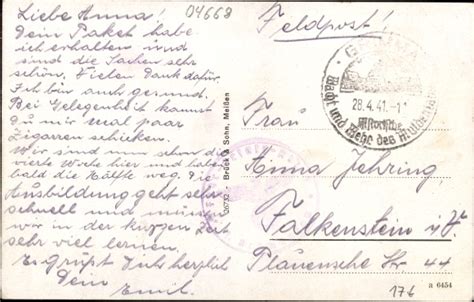 Liebe Anna!
04668
Dein Paket habe
ich erhalten und
sind die Sachen sehr
schön. Vielen Dank dafür.
Ich bin auch gesund.
Bei Gelegenheit kannst
Du mir mal paar
Zigaren schicken.
Wir sind nun schon die
vierte Woche hier und haben
bald die Hälfte weg. Die
Ausbildung geht sehr
schnell und müssen
wir in der kurzen Zeit
sehr viel lernen.
Es grüßt Dich herzlich
Dein
Emil.
Brück & Sohn, Meißen
Feldpost!
28.4.41.-1
Frau
Anna Jehring
Falkenstein i. V.
Plauensche Str 44
a 6454
176